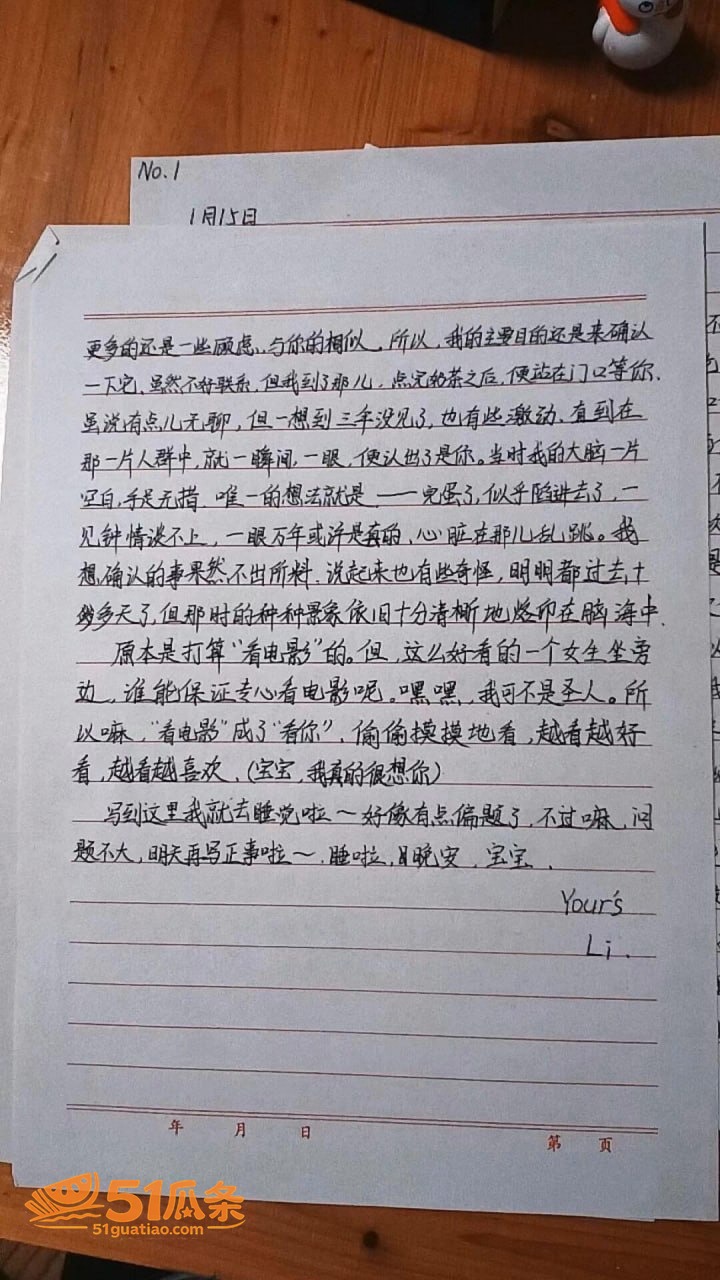 No.1
1月15日
更多的还是一些顾虑,与你的相似。所以,我的主要目的还是来确认
一下它.虽然不好联系,但我到了那儿,点完奶茶之后,便站在门口等你.
虽说有点儿无聊,但一想到三年没见了,也有些激动.直到在
那一片人群中,就一瞬间,一眼,便认出了是你。当时我的大脑一片
空白,手足无措.唯一的想法就是——完蛋了,似乎陷进去了,一
见钟情谈不上,一眼万年或许是真的,心脏在那儿乱跳。我
想确认的事果然不出所料.说起来也有些奇怪,明明都过去十
多天了,但那时的种种景象依旧十分清晰地烙印在脑海中.
原本是打算“看电影”的。但,这么好看的一个女生坐旁
边,谁能保证专心看电影呢。嘿嘿,我可不是圣人。所
以嘛,“看电影”成了“看你”,偷偷摸摸地看,越看越好
看,越看越喜欢.(宝宝,我真的很想你)
写到这里我就去睡觉啦~好像有点偏题了,不过嘛,问
题不大,明天再写正事啦~.睡啦,晚安,宝宝.
Your's
Li.
年 月 日
第 页
51瓜条
51guatiao.com